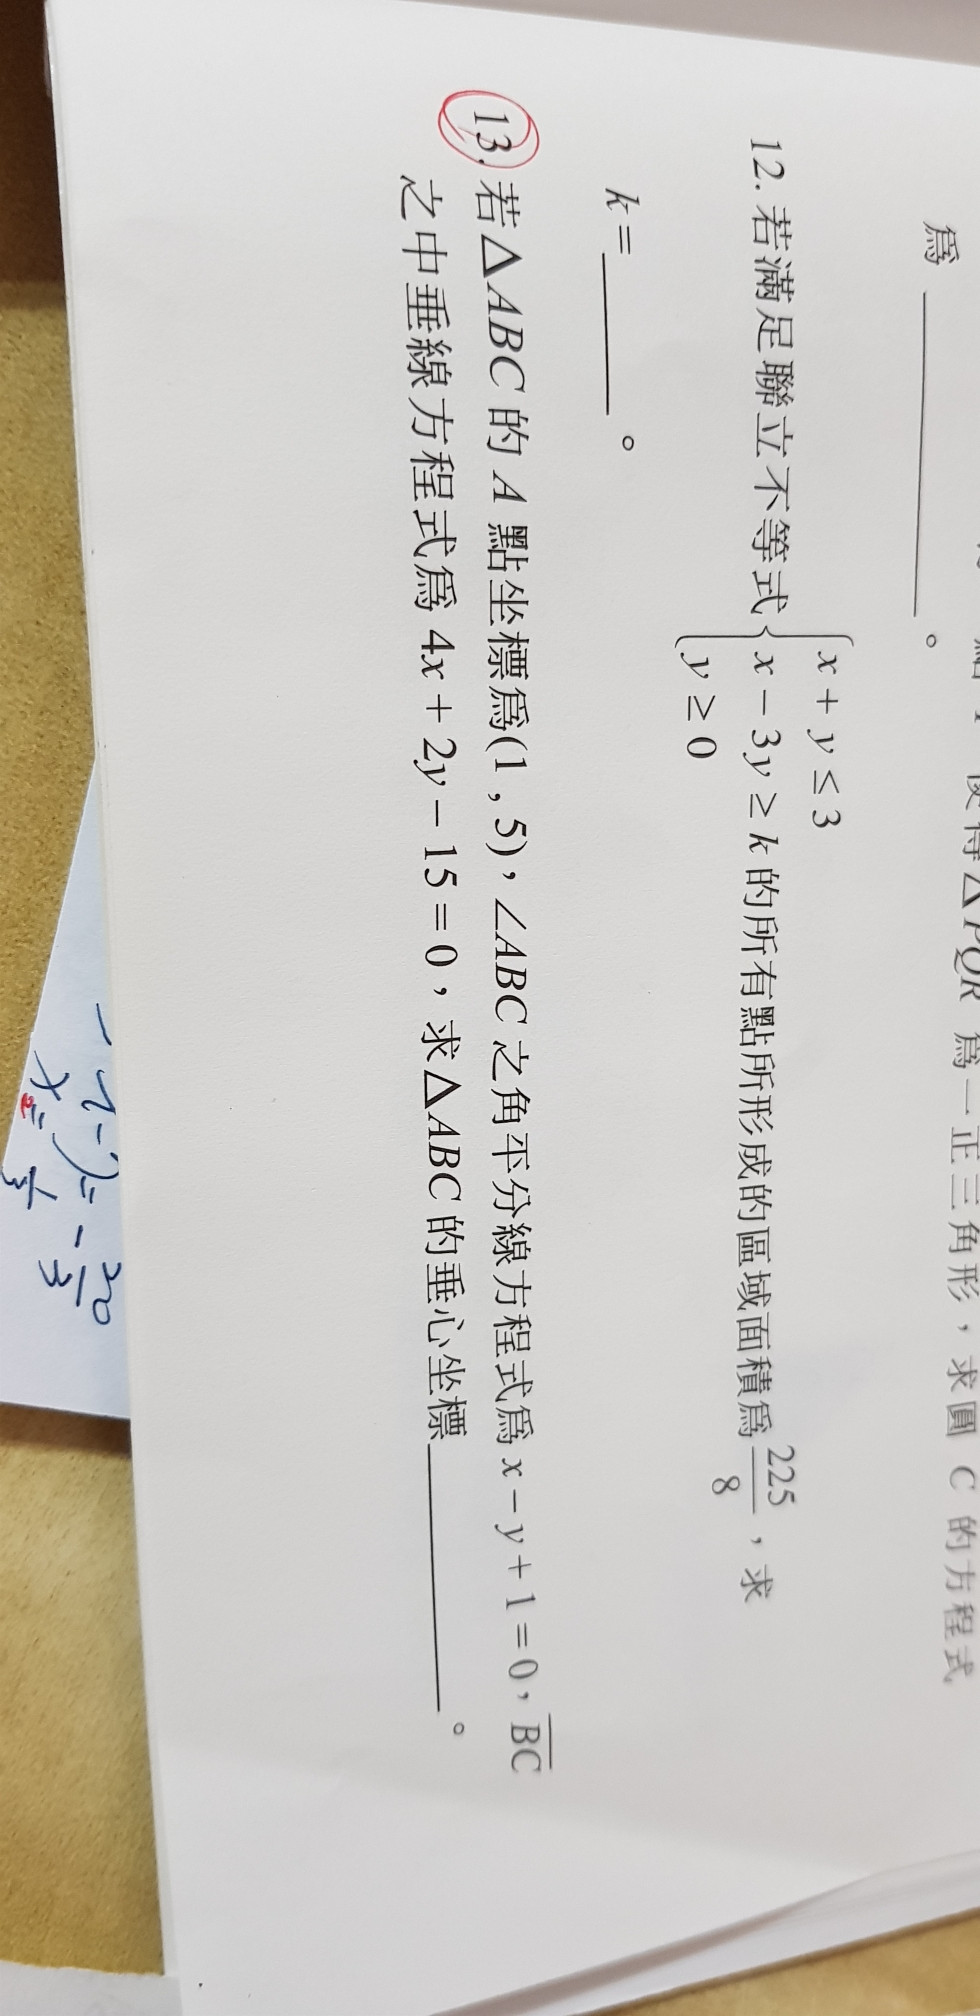 使得△PQR 為一正三角形，求圓 C 的方程式
為 ________ 。
12. 若滿足聯立不等式 { x + y ≤ 3
x - 3y ≥ k 的所有點所形成的區域面積為 225/8 ，求
y ≥ 0
k = ________ 。
13. 若△ABC 的 A 點坐標為(1 , 5)，∠ABC 之角平分線方程式為 x - y + 1 = 0，BC
之中垂線方程式為 4x + 2y - 15 = 0，求△ABC 的垂心坐標 ________ 。